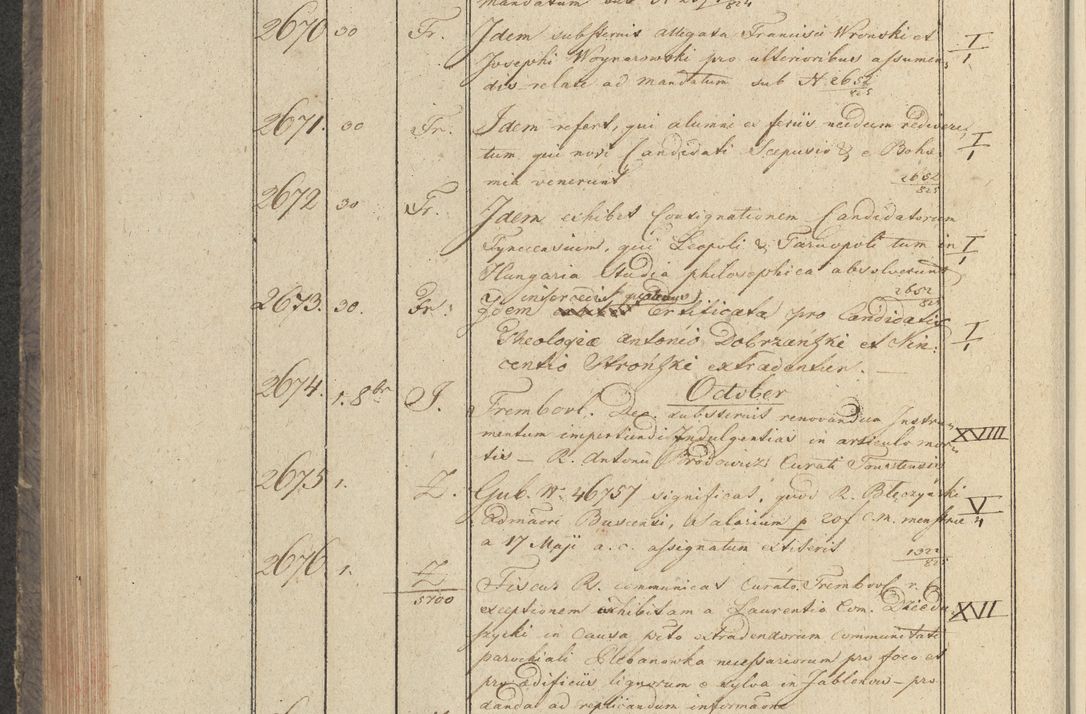 mandatum sub N 
2670. 30 Fr. Idem substernit allegata Francisci Wronski et I/1
Josephi Woynarowski pro ulterioribus assumen
dis relate ad mandatum sub N 2652/825
2671. 30 Fr. Idem refert, qui alumni ex feriis necdum redivere, I/1
tum qui novi Candidati Scepusio & e Bohe
mia venerunt 2652/825
2672 30 Fr. Idem exhibet Consignationem Candidatorum
Tyneccensium, qui Leopoli & Tarnopoli tum in I/1
Hungaria Studia philosophica absolverunt
2652/825
intercedit quatenus
2673. 30. Fr. Idem Certificata pro Candidatis
Theologiæ Antonio Dobrzański et Vin I/1
centio Stroński extradentur.
October
2674. 1. 8br J. Trembovl. Dec. substernit renovandum Instru
mentum impertiendi Indulgentias in articulo mor XVIII
tis – R. Antonii Brodowicz Curati
2675 1. Z. Gub. N. 46757 significat, quod R. Błęczyński
Admrori Buscensi, salarium p 20 f C.M. menstrue V/4
a 17 Maji a. c. assignatum extiterit 1322/825
2676. 1. Z/5700 Fiscus R. communicat Curato Trembovl. r. G.
exceptionem exhibitam a Laurentio Com. Dziedu XVII
szycki in causa pcto extradendorum Communitati
parochiali Plebanowka necessariorum pro foco et
pro ædificiis lignorum e sylva in Jablonow – pro
danda ad replicandum informaone